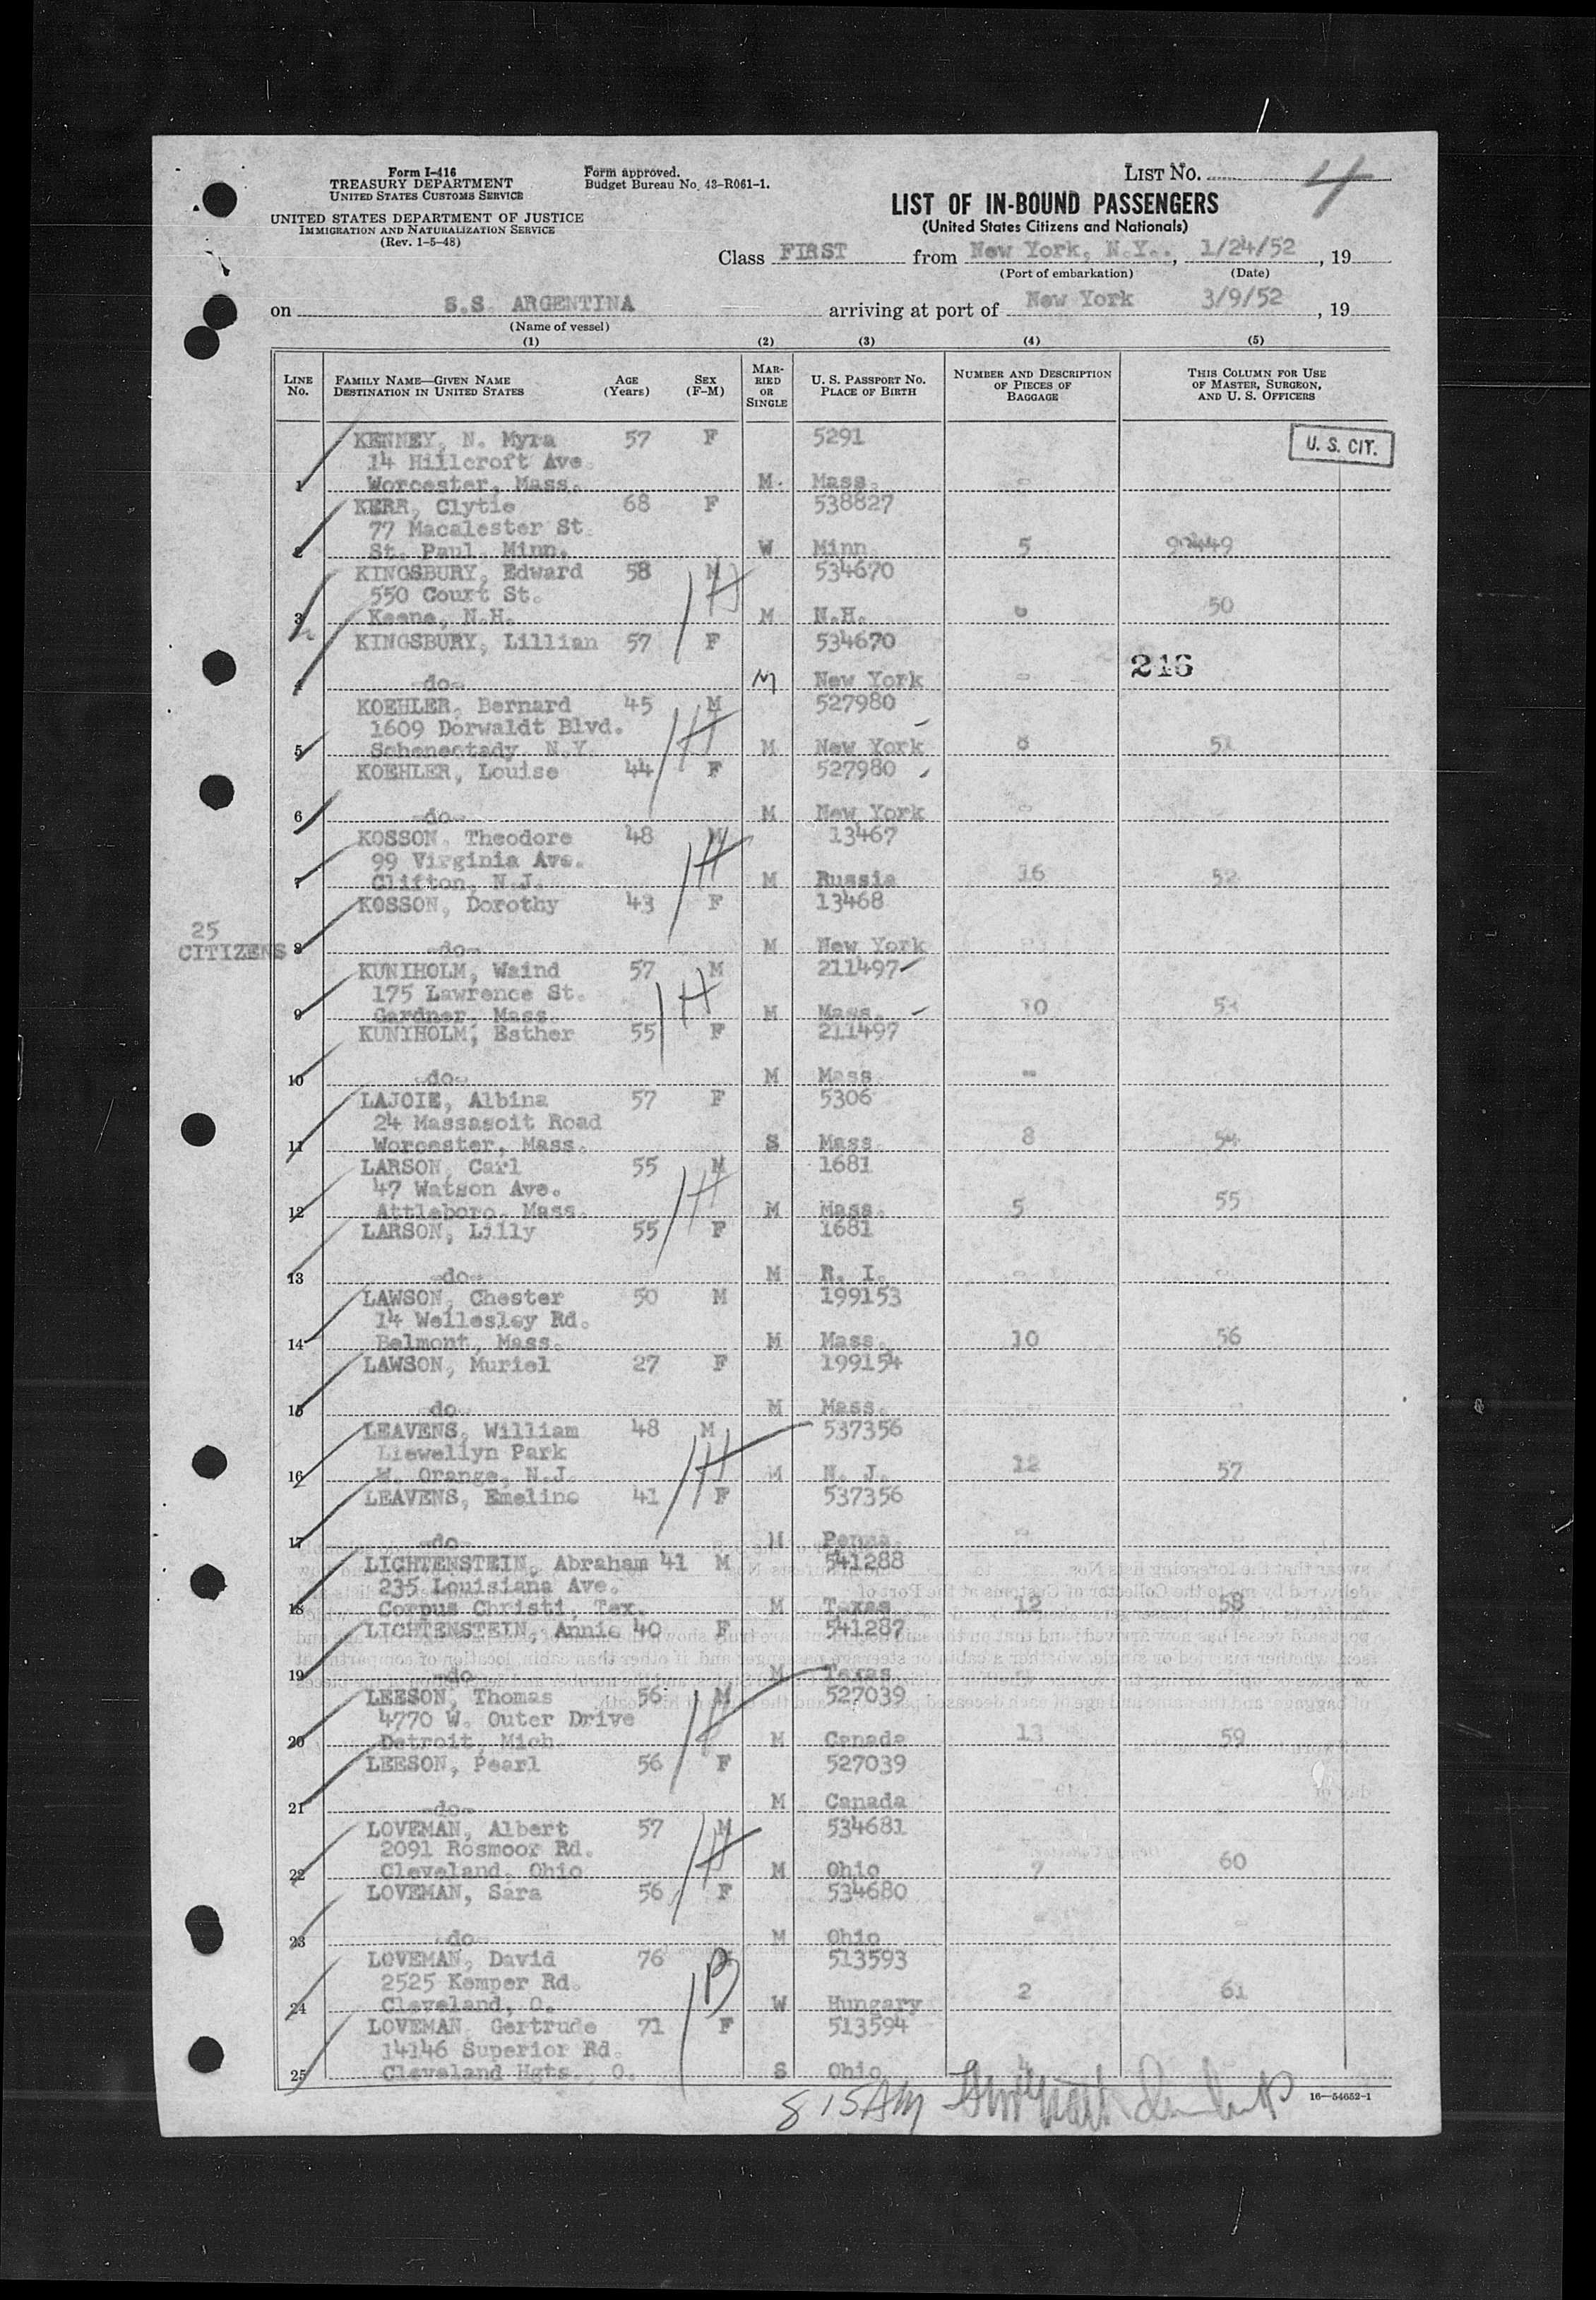 Form I-416
TREASURY DEPARTMENT
UNITED STATES CUSTOMS SERVICE
UNITED STATES DEPARTMENT OF JUSTICE
IMMIGRATION AND NATURALIZATION SERVICE
(Rev. 1-5-48)
Form approved.
Budget Bureau No. 43-R061-1.
LIST NO. 4
LIST OF IN-BOUND PASSENGERS
(United States Citizens and Nationals)
Class FIRST from New York, N.Y., 1/24/52, 19
(Port of embarkation) (Date)
on S.S. ARGENTINA arriving at port of New York 3/9/52, 19
(Name of vessel)
(1) (2) (3) (4) (5)
LINE No. FAMILY NAME—GIVEN NAME DESTINATION IN UNITED STATES AGE (Years) SEX (F-M) MARRIED OR SINGLE U. S. PASSPORT No. PLACE OF BIRTH NUMBER AND DESCRIPTION OF PIECES OF BAGGAGE THIS COLUMN FOR USE OF MASTER, SURGEON, AND U. S. OFFICERS
KENNEY, N. Myra 57 F 5291 U. S. CIT.
14 Hillcroft Ave.
1 Worcester, Mass. M. Mass. -
KERR, Clytie 68 F 538827
77 Macalester St.
2 St. Paul, Minn. W Minn. 5
KINGSBURY, Edward 58 M 534670
550 Court St.
3 Keene, N.H. M N.H. 50
KINGSBURY, Lillian 57 F 534670
216
4 -do- M New York -
KOEHLER, Bernard 45 M 527980
1609 Dorwaldt Blvd.
5 Schenectady, N.Y. M New York 51
KOEHLER, Louise 44 F 527980
6 -do- M New York -
KOSSON, Theodore 48 M 13467
99 Virginia Ave.
7 Clifton, N.J. M Russia 16 52
KOSSON, Dorothy 43 F 13468
25
CITIZENS
8 -do- M New York
KUNIHOLM, Waind 57 M 211497
175 Lawrence St.
9 Gardner, Mass. M Mass. 10 53
KUNIHOLM, Esther 55 F 211497
10 -do- M Mass. -
LAJOIE, Albina 57 F 5306
24 Massasoit Road
11 Worcester, Mass. S Mass. 8 54
LARSON, Carl 55 M 1681
47 Watson Ave.
12 Attleboro, Mass. M Mass. 5 55
LARSON, Lilly 55 F 1681
13 -do- M R. I. - -
LAWSON, Chester 50 M 199153
14 Wellesley Rd.
14 Belmont, Mass. M Mass. 10 56
LAWSON, Muriel 27 F 199154
15 -do- M Mass.
LEAVENS, William 48 M 537356
Llewellyn Park
16 W. Orange, N.J. M N. J. 12 57
LEAVENS, Emeline 41 F 537356
17 -do- M Penna. -
LICHTENSTEIN, Abraham 41 M 541288
235 Louisiana Ave.
18 Corpus Christi, Tex. M Texas 12 58
LICHTENSTEIN, Annie 40 F 541287
19 -do- M Texas
LEESON, Thomas 56 M 527039
4770 W. Outer Drive
20 Detroit, Mich. M Canada 13 59
LEESON, Pearl 56 F 527039
21 -do- M Canada
LOVEMAN, Albert 57 M 534681
2091 Rosmoor Rd.
22 Cleveland, Ohio M Ohio 7 60
LOVEMAN, Sara 56 F 534680
23 -do- M Ohio - -
LOVEMAN, David 76 513593
2525 Kemper Rd.
24 Cleveland, O. W Hungary 2 61
LOVEMAN, Gertrude 71 F 513594
14146 Superior Rd.
25 Cleveland Hgts., O. S Ohio 4
8 15 AM
16—54652-1